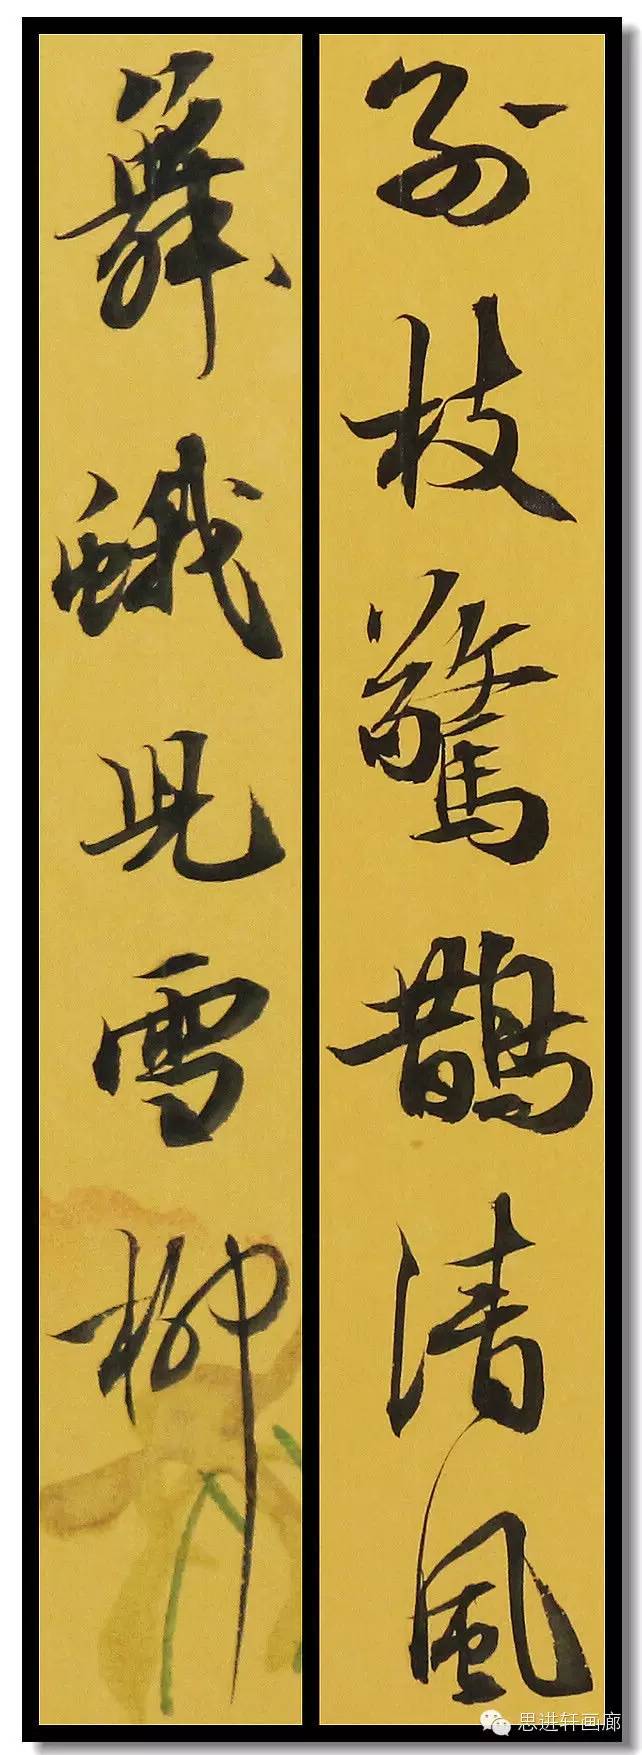 别枝驚鵲清風
舞蛾兒雪柳
思进轩画廊